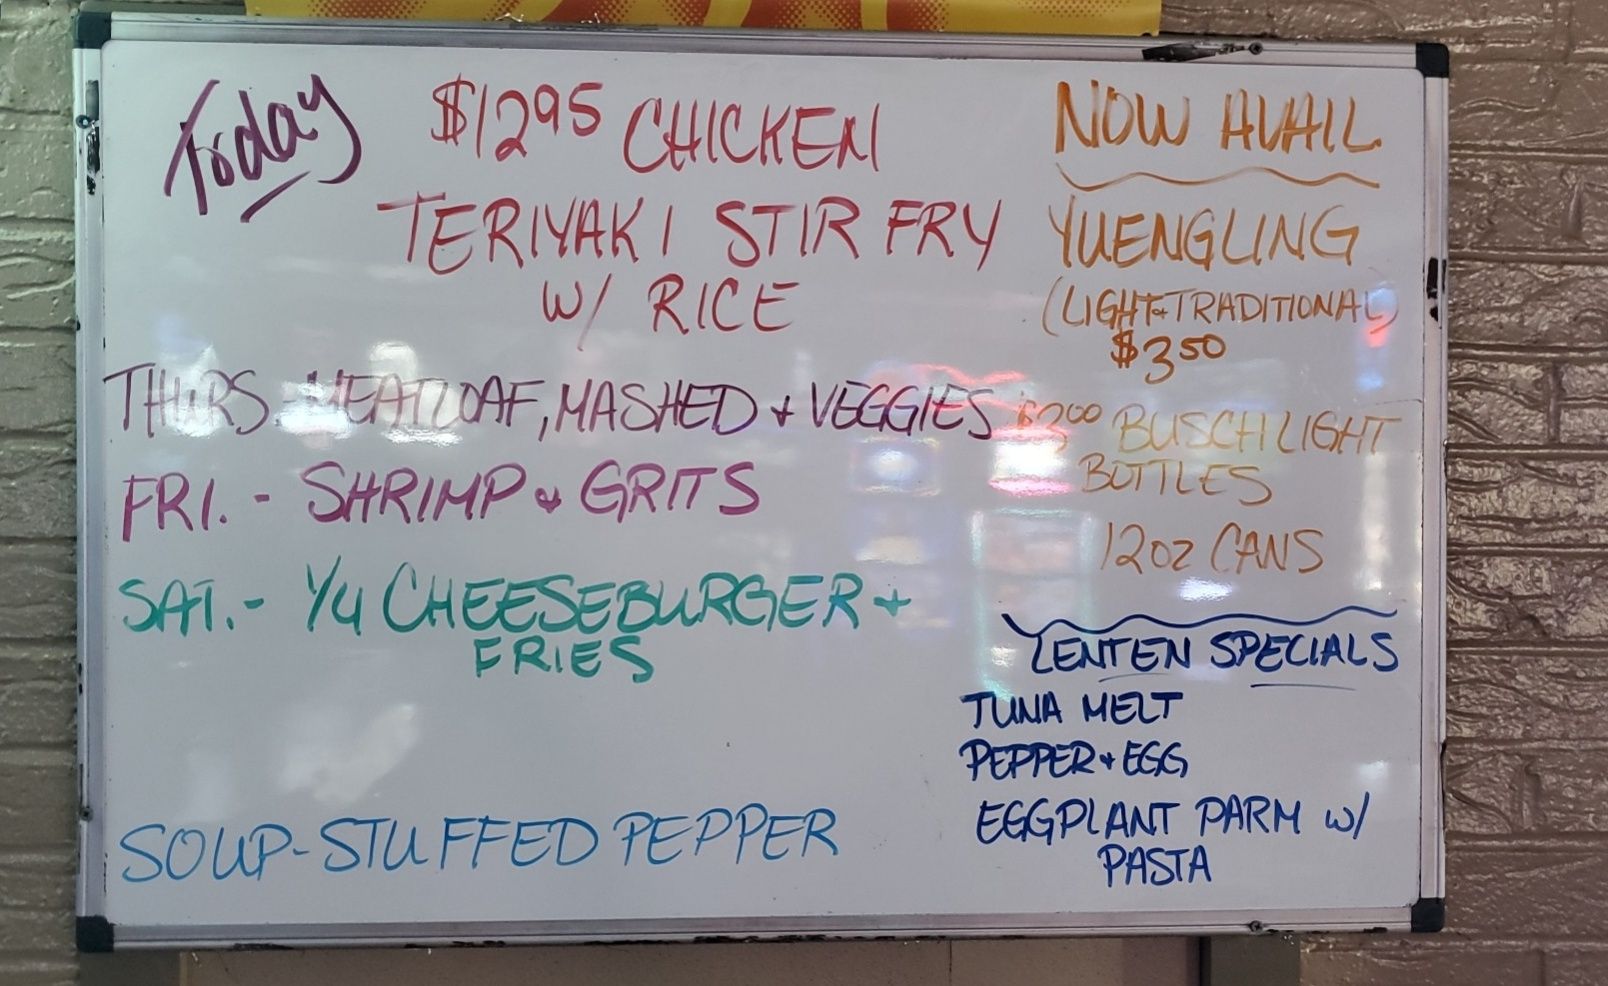 Today
$12.95 CHICKEN
TERIYAKI STIR FRY
W/ RICE
THURS.-MEATLOAF, MASHED + VEGGIES
FRI. - SHRIMP & GRITS
SAT. - 1/4 CHEESEBURGER +
FRIES
SOUP-STUFFED PEPPER
NOW AVAIL.
YUENGLING
(LIGHT+TRADITIONAL)
$3.50
$3.00 BUSCH LIGHT
BOTTLES
12oz CANS
LENTEN SPECIALS
TUNA MELT
PEPPER + EGG
EGGPLANT PARM W/
PASTA